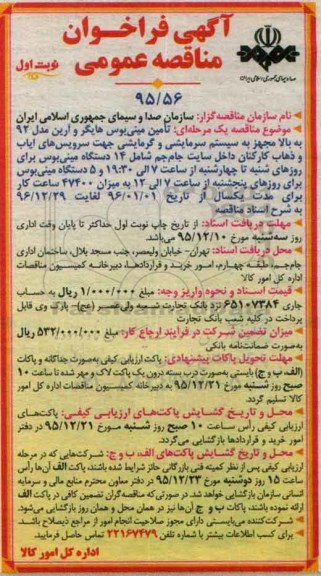 آگهی فراخوان
مناقصه عمومی
نوبت اول
صدا و سیمای جمهوری اسلامی ایران
۹۵/۵۶
نام سازمان مناقصه‌گزار: سازمان صدا و سیمای جمهوری اسلامی ایران
موضوع مناقصه یک مرحله‌ای: تأمین مینی‌بوس هایگر و آرین مدل ۹۲
به بالا مجهز به سیستم سرمایشی و گرمایشی جهت سرویس‌های ایاب
و ذهاب کارکنان داخل سایت جام‌جم شامل ۱۴ دستگاه مینی‌بوس برای
روزهای شنبه تا چهارشنبه از ساعت ۷ الی ۱۹:۳۰ و ۵ دستگاه مینی‌بوس
برای روزهای پنجشنبه از ساعت ۷ الی ۱۲ به میزان ۴۷۴۰۰ ساعت کار
برای مدت یکسال از تاریخ ۹۶/۰۱/۰۱ لغایت ۹۶/۱۲/۲۹
به شرح اسناد مناقصه
مهلت دریافت اسناد: از تاریخ چاپ نوبت اول حداکثر تا پایان وقت اداری
روز سه‌شنبه مورخ ۹۵/۱۲/۱۰ می‌باشد.
محل دریافت اسناد: تهران- خیابان ولیعصر، جنب مسجد بلال، ساختمان اداری
جام‌جم، طبقه چهارم، امور خرید و قراردادها، دبیرخانه کمیسیون مناقصات
اداره کل امور کالا
قیمت اسناد و نحوه واریز وجه: مبلغ ۱/۰۰۰/۰۰۰ ریال به حساب
جاری ۶۵۱۰۷۳۸۴ نزد بانک تجارت شعبه ولی‌عصر (عج)- بازار وی قابل
پرداخت در کلیه شعب بانک تجارت
میزان تضمین شرکت در فرآیند ارجاع کار: مبلغ ۵۳۲/۰۰۰/۰۰۰ ریال
به‌صورت ضمانت‌نامه بانکی
مهلت تحویل پاکات پیشنهادی: پاکت ارزیابی کیفی به‌صورت جداگانه و پاکات
(الف، ب و ج) بایستی به‌صورت درب بسته درون یک پاکت لاک و مهر شده تا ساعت ۱۰
صبح روز شنبه مورخ ۹۵/۱۲/۲۱ به دبیرخانه کمیسیون مناقصات اداره کل امور
کالا تسلیم گردد.
محل و تاریخ گشایش پاکت‌های ارزیابی کیفی: پاکت‌های
ارزیابی کیفی رأس ساعت ۱۰ صبح روز شنبه مورخ ۹۵/۱۲/۲۱ در دفتر
امور خرید و قراردادها بازگشایی می‌گردد.
محل و تاریخ گشایش پاکت‌های الف، ب و ج: شرکت‌هایی که در مرحله
ارزیابی کیفی پس از نظر کمیته فنی بازرگانی حائز شرایط شده باشند، پاکت الف آن‌ها رأس
ساعت ۱۵ روز دوشنبه مورخ ۹۵/۱۲/۲۳ در دفتر معاون محترم منابع مالی و سرمایه
انسانی سازمان بازگشایی خواهد شد. در صورتی‌که مناقصه‌گران تضمین کافی در پاکت الف
ارائه نموده باشند، پاکات ب و ج آن‌ها نیز در همان محل و همان روز بازگشایی می‌شود.
شرکت‌کننده می‌بایستی دارای مجوز صلاحیت انجام امور از مراجع ذیصلاح باشد.
برای کسب اطلاعات بیشتر با شماره تلفن ۲۲۱۶۷۴۷۹ تماس حاصل فرمایید.
اداره کل امور کالا